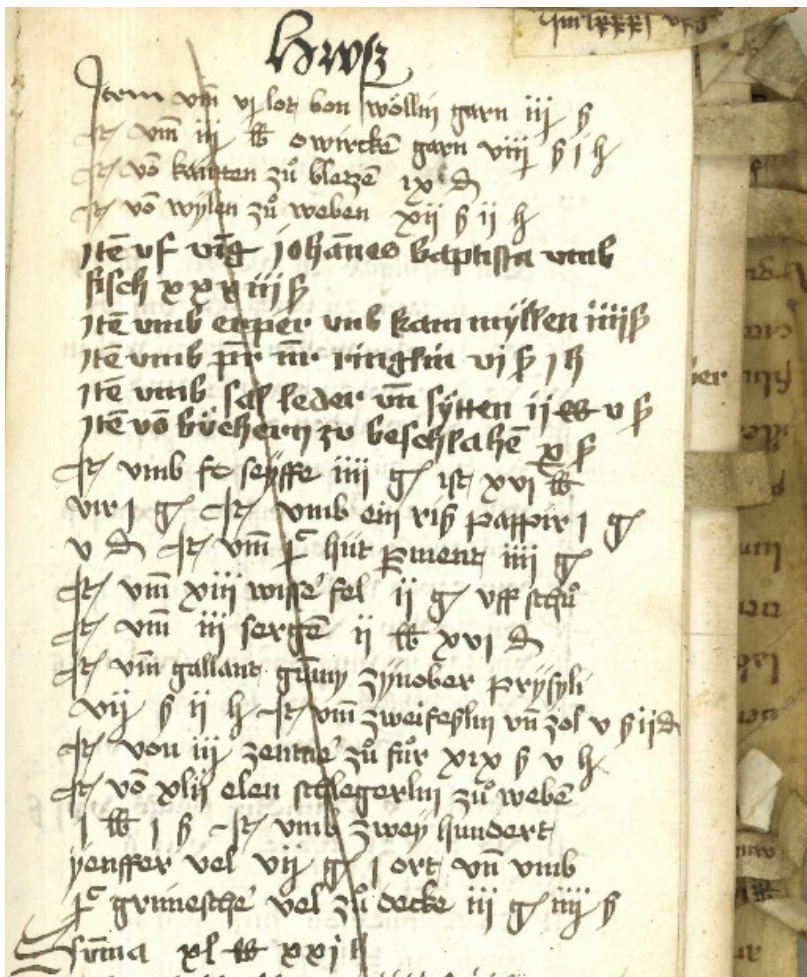 Hwß
Item vm̄ vj lot von wöllin garn iij ß
It vm̄ iij lb garn viij ß j h
It vō kannten zů bletzē ix d
It vō wylen zů weben xij ß ij h
Itē vf johānes baptista vmb
fisch xxxiij ß
Itē vmb vnb kam myllen iiij ß
Itē vmb ringlin vj ß j h
Itē vmb sal leder vn̄ sytten ij lb v ß
Itē vō büchern zv beschlahē x ß
It vmb seyffe iiij g ist xvj lb
j g It vmb ein riß pappir j g
v d It vm̄ hüt pment iiij g
It vm̄ xiij wisse fel ij g vff schů
It vm̄ iij sergē ij lb xvj d
It vm̄ gallant gūmy zynober prysyli
vij ß ij h It vm̄ vn̄ zol v ß ij d
It von iij zentner zů fůr xix ß v h
It vō xlij elen schlegerlin zů webē
j lb j ß It vmb zwey hundert
yenffer vel vij g j ort vn̄ vmb
vel zů decke iij g iiij ß
Sūma xl lb xxj h